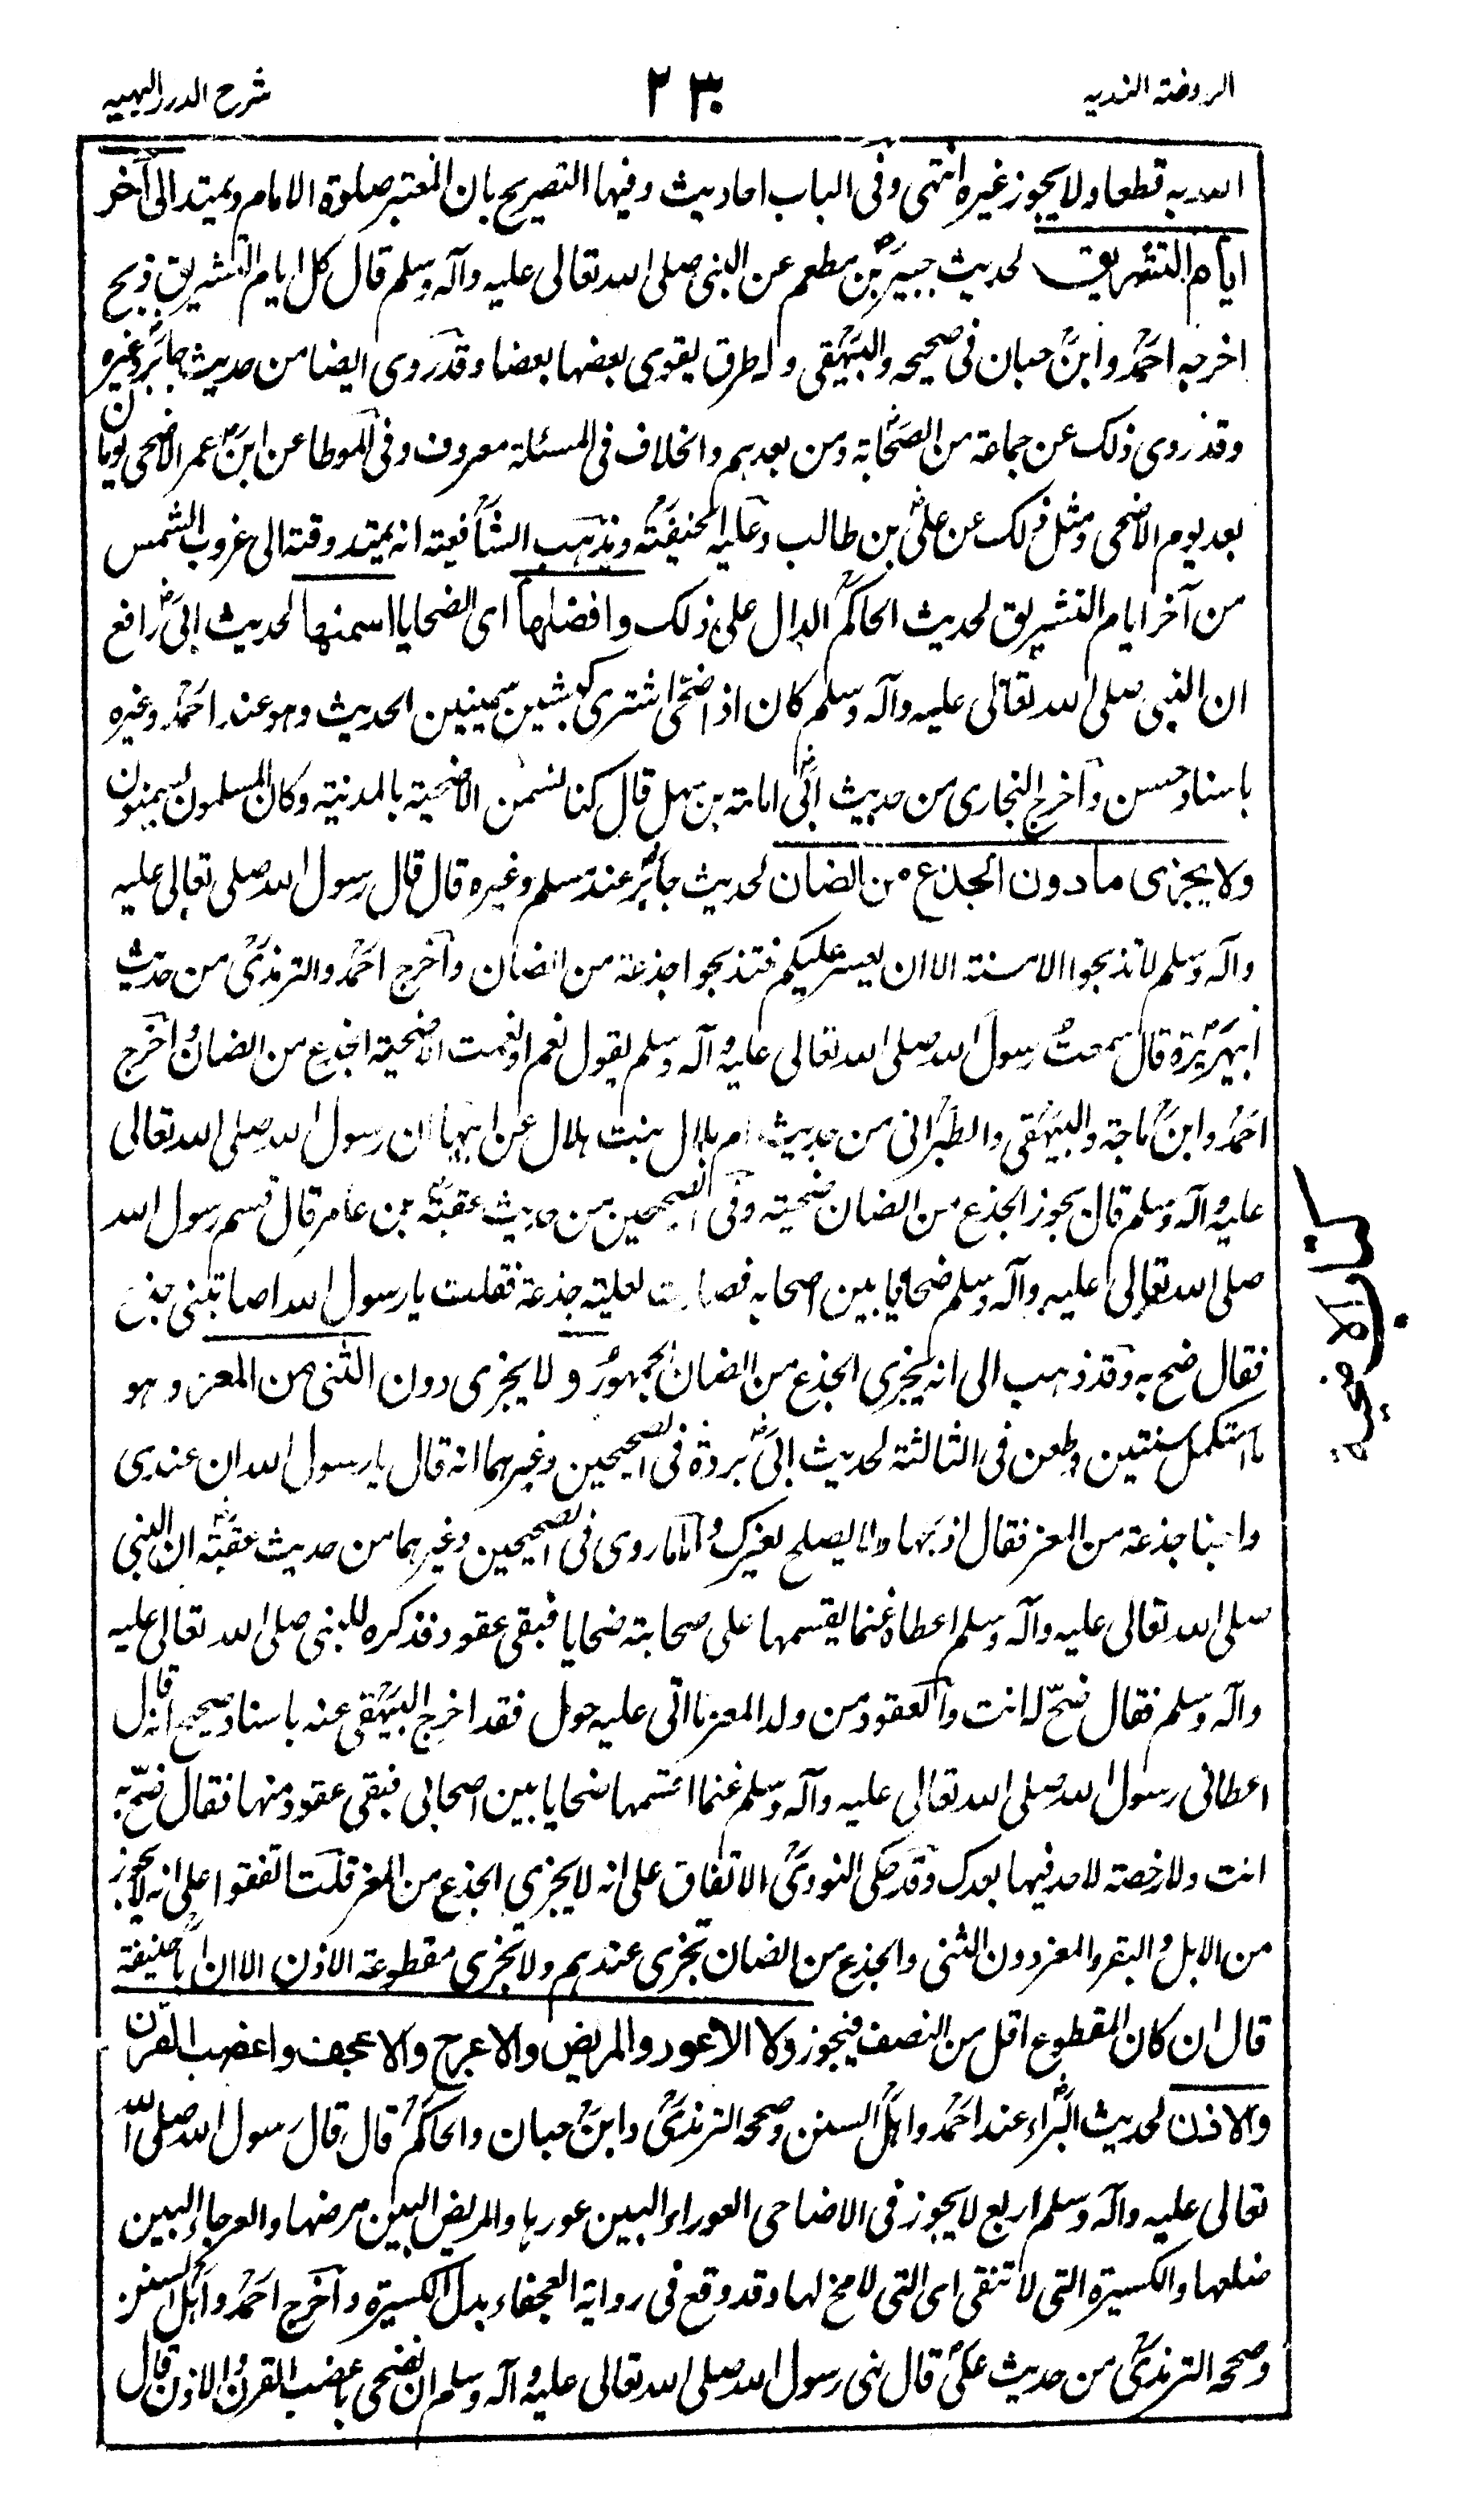 الروضة الندیه
٢٣٠
شرح الدرر البهیه
الله به قطعا ولا يجوز غيره انتهى وفى الباب احاديث وفيها التصريح بان المعتبر صلوة الامام ويمتد الى آخر
ايام التشريق لحديث جبير بن مطعم عن النبى صلى الله تعالى عليه وآله وسلم قال كل ايام التشريق ذبح
اخرجه احمد وابن حبان فى صحيحه والبيهقى وله طرق يقوى بعضها بعضا وقد روى ايضا من حديث جابر وغيره
وقد روى ذلك عن جماعة من الصحابة ومن بعدهم والخلاف فى المسئلة معروف وفى الموطا عن ابن عمر الاضحى يومان
بعد يوم الاضحى ومثل ذلك عن على بن طالب وعليه الحنفية ومذهب الشافعية انه يمتد وقته الى غروب الشمس
من آخر ايام التشريق لحديث الحاكم الدال على ذلك وافضلها اى الضحايا اسمنها لحديث ابى رافع
ان النبى صلى الله تعالى عليه وآله وسلم كان اذا ضحى اشترى كبشين سمينين الحديث وهو عند احمد وغيره
باسناد حسن وآخرج البخارى من حديث ابى امامة بن سهل قال كنا نسمن الاضحية بالمدينة وكان المسلمون يسمنون
ولا يجزى مادون الجذع من الضان لحديث جابر عند مسلم وغيره قال قال رسول الله صلى تعالى عليه
وآله وسلم لا تذبحوا الا مسنة الا ان يعسر عليكم فتذبحوا جذعة من الضان وآخرج احمد والترمذى من حديث
ابيهريرة قال سمعت رسول الله صلى الله تعالى عليه وآله وسلم يقول نعم او نعمت الاضحية الجذع من الضان واخرج
احمد وابن ماجة والبيهقى والطبرانى من حديث ام بلال بنت هلال عن ابيها ان رسول الله صلى الله تعالى
عليه وآله وسلم قال يجوز الجذع من الضان ضحية وفى الصحيحين من حديث عقبة بن عامر قال قسم رسول الله
صلى الله تعالى عليه وآله وسلم ضحايا بين اصحابه فصارت لعقبة جذعة فقلت يا رسول الله اصابتنى جذع
فقال ضح به وقد ذهب الى انه يجزى الجذع من الضان الجمهور و لا يجزى دون الثنى من المعز و هو
ما استكمل سنتين وطعن فى الثالثة لحديث ابى بردة فى الصحيحين وغيرهما انه قال يا رسول الله ان عندى
داجنا جذعة من المعز فقال اذبحها ولا يصلح لغيرك واما ما روى فى الصحيحين وغيرهما من حديث عقبة ان النبى
صلى الله تعالى عليه وآله وسلم اعطاه غنما يقسمها على صحابته ضحايا فبقى عقود فذكره للنبى صلى الله تعالى عليه
وآله وسلم فقال ضح له انت والعقود من ولد المعز ما اتى عليه حول فقد اخرج البيهقى عنه باسناد صحيح انه قال
اعطانى رسول الله صلى الله تعالى عليه وآله وسلم غنما اقسمها ضحايا بين اصحابى فبقى عقود منها فقال ضح به
انت ولا رخصة لاحد فيها بعدك وقد حكى النووى الاتفاق على انه لا يجزى الجذع من المعز قلت اتفقوا على انه لا يجوز
من الابل والبقر والمعز دون الثنى والجذع من الضان تجزى عندهم ولا تجزى مقطوعة الاذن الا ان ابا حنيفة
قال ان كان المقطوع اقل من النصف فيجوز ولا الاعور والمريض والاعرج والاعجف واعضب القرن
والاذن لحديث البراء عند احمد واهل السنن وصححه الترمذى وابن حبان والحاكم قال قال رسول الله صلى الله
تعالى عليه وآله وسلم اربع لا يجوز فى الاضاحى العوراء البين عورها والمريض البين مرضها والعرجاء البين
ضلعها والكسيرة التى لا تنقى اى التى لا مخ لها وقد وقع فى رواية العجفاء بدل الكسيرة وآخرج احمد واهل السنن
وصححه الترمذى من حديث على قال نهى رسول الله صلى الله تعالى عليه وآله وسلم ان نضحى باعضب القرن والاذن قال
كتاب الاضحية